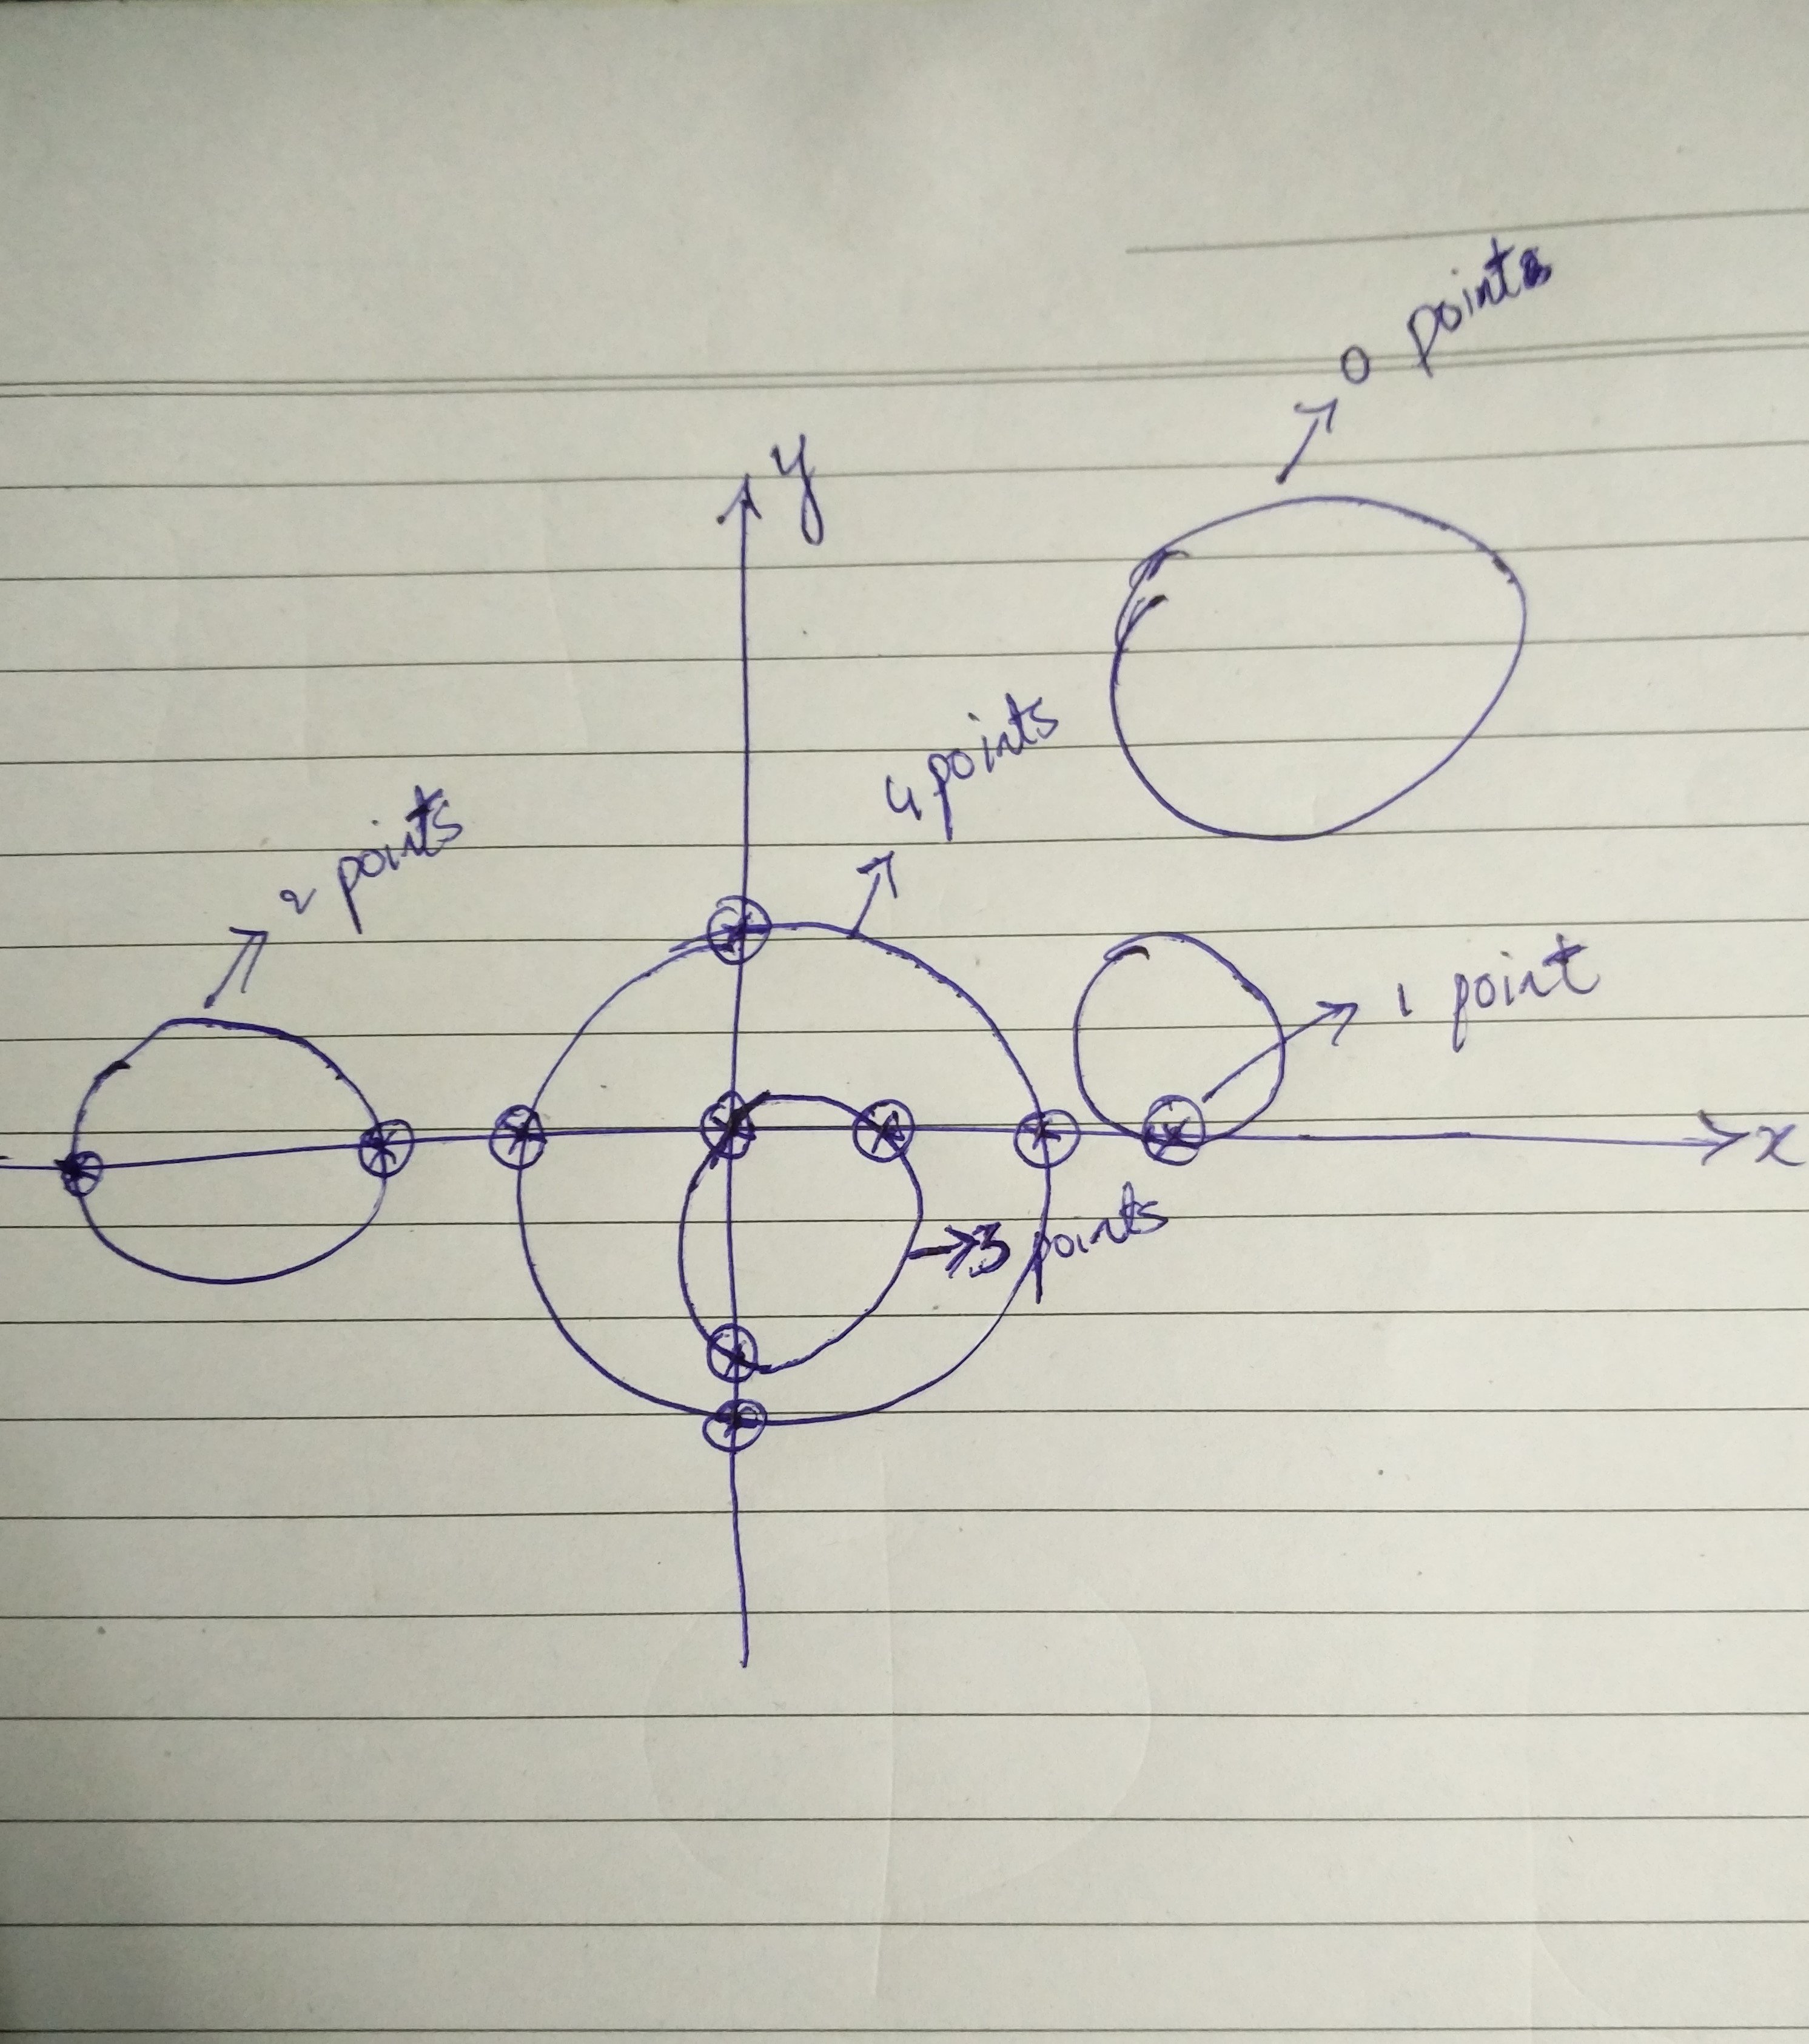 0 points
y
4 points
2 points
1 point
x
3 points